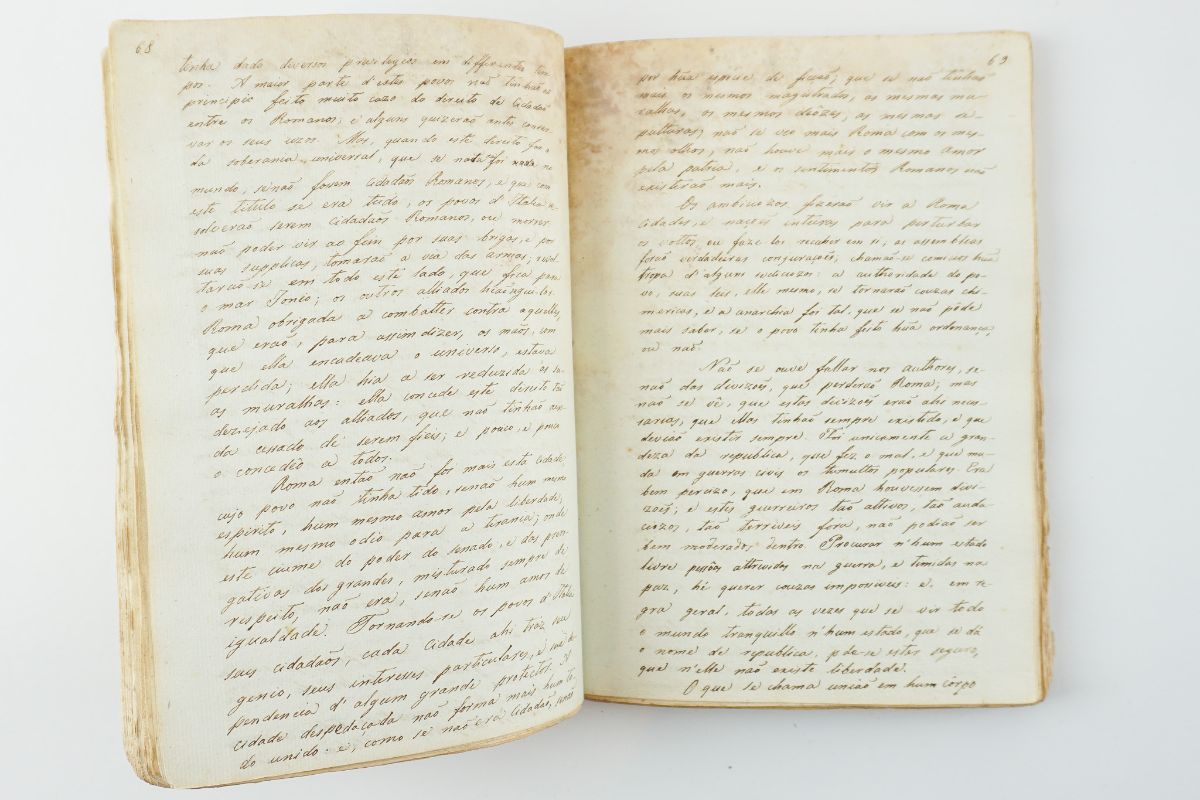 68
tinha dado diversos privilegios em differentes tem-
pos. A maior parte d'estes povos naõ tinhaõ ao
principio feito muito cazo do direito de Cidadaõ
entre os Romanos; e alguns quizeraõ antes conser-
var os seus uzos. Mas, quando este direito foi o
da soberania universal, que se naõ foi nada no
mundo, senaõ fossem Cidadaõs Romanos, e que com
este titulo se era tudo, os povos d'Italia re-
solveraõ serem cidadaõs Romanos, ou morrer.
naõ poder vir ao fim por suas brigas, e por
suas supplicas, tomaraõ a via das armas; revol-
taraõ-se em todo este lado, que fica para
o mar Jonio; os outros alliados hiaõ segui-los
Roma obrigada a combatter contra aquelles,
que eraõ, para assim dizer, as maõs, com
que ella encadeava o universo, estava
perdida; ella hia a ser reduzida ás su-
as muralhas: ella concede este direito taõ
dezejado aos alliados, que naõ tinhaõ ain-
da cessado de serem fieis; e pouco, e pouco
o concedêo a todos.
Roma entaõ naõ foi mais esta cidade,
cujo povo naõ tinha tido, senaõ hum mesmo
espirito, hum mesmo amor pela liberdade,
hum mesmo odio para a tirania; onde
este ciume do poder do senado, e das prero-
gativas dos grandes, misturado sempre de
respeito, naõ era, senaõ hum amor de
igualdade. Tornando-se os povos d'Italia
seus cidadaõs, cada cidade ahi traz seu
genio, seus interesses particulares, e sua de-
pendencia d'algum grande protector. A
cidade despedaçada naõ forma mais hum to-
do unido: e, como se naõ era Cidadaõ, senaõ
69
por húa especie de ficçaõ; que se naõ tinhaõ
mais os mesmos magistrados, as mesmas mu-
ralhas, os mesmos deôzes, as mesmas se-
pulturas; naõ se vio mais Roma com os mes-
mos olhos, naõ houve mais o mesmo amor
pela patria, e os sentimentos Romanos naõ
existiraõ mais.
Os ambiciozos fizeraõ vir a Roma
cidades, e naçoẽs inteiras para perturbar
os vottos, ou faze-los recaher em si; as assembleas
foraõ verdadeiras conjuraçoẽs; chamaõ-se comicios húa
tropa d'alguns sediciozos: a authoridade do po-
vo, suas leis, elle mesmo, se tornaraõ couzas chi-
mericas, e a anarchia foi tal, que se naõ pôde
mais saber, se o povo tinha feito húa ordenança,
ou naõ.
Naõ se ouve fallar nos authores, se-
naõ das divizoẽs, que perderaõ Roma; mas
naõ se vê, que estas divizoẽs eraõ ahi neces-
sarias, que ellas tinhaõ sempre existido, e que
deviaõ existir sempre. Foi unicamente a gran-
deza da republica, que fez o mal, e que mu-
da em guerras civis os tumultos populares. Era
bem precizo, que em Roma houvessem divi-
zoẽs; e estes guerreiros taõ altivos, taõ auda-
ciozos, taõ terriveis fóra, naõ podiaõ ser
bem moderados dentro. Procurar n'hum estado
livre pessoas attrevidas na guerra, e timidas na
paz, hé querer couzas impossiveis: e, em re-
gra geral, todas as vezes que se vir todo
o mundo tranquillo n'hum estado, que se dá
o nome de republica, póde-se estar seguro,
que n'elle naõ existe liberdade.
O que se chama uniaõ em hum corpo